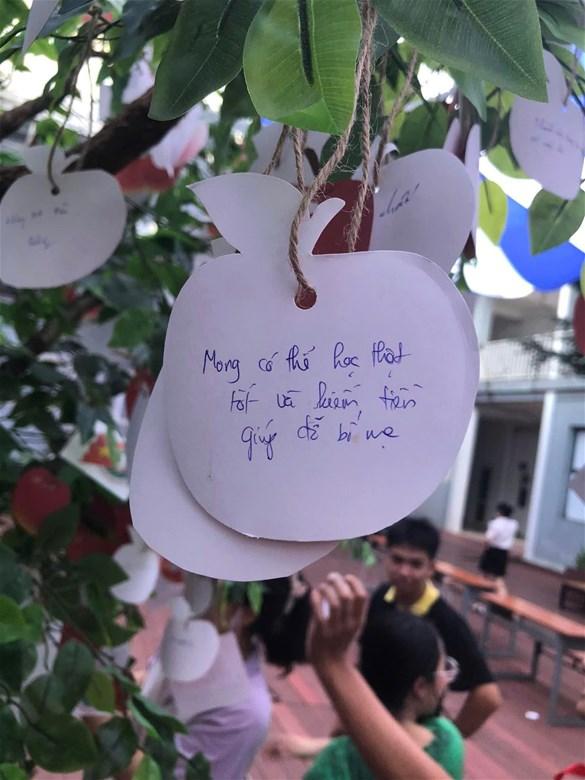 Mong có thể học thật
tốt và kiếm tiền
giúp đỡ bố mẹ